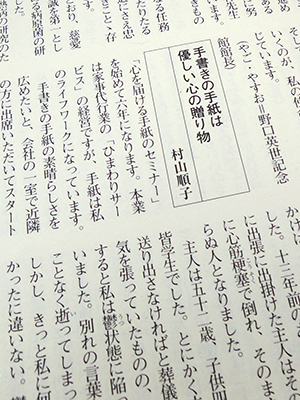 る任務
たりたる
きこと、存
おり、慈愛
誠を第一とし
る病原菌の研
病の研究のた
いくのが、私の
じています。
（やご・やすお＝野口英世記念
館館長）
手書きの手紙は
優しい心の贈り物
村山順子
「心を届ける手紙のセミナー」
を始めて六年になります。本業
は家事代行業の「ひまわりサー
ビス」の経営ですが、手紙は私
のライフワークになっています。
手書きの手紙の素晴らしさを
広めたいと、会社の一室で近隣
の方に出席いただいてスタート
した。十三年前の
に出張に出掛けた主人は
に心筋梗塞で倒れ、そのま
らぬ人となりました。
主人は五十二歳、子供四
皆学生でした。とにかく
送り出さなければと葬儀
気を張っていたものの、
すると私は鬱状態に陥
いました。別れの言葉
ことなく逝ってしまっ
しかし、きっと私に何
かったに違いない。鬱